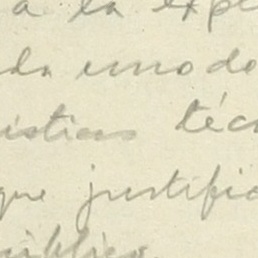 a la expe
da uno do
ísticas téc
que justific
ública.